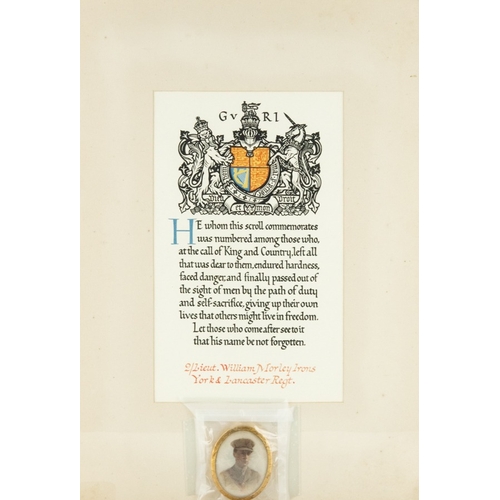 GV RI
Dieu Droit
et mon
HE whom this scroll commemorates
was numbered among those who,
at the call of King and Country, left all
that was dear to them, endured hardness,
faced danger, and finally passed out of
the sight of men by the path of duty
and self-sacrifice, giving up their own
lives that others might live in freedom.
Let those who come after see to it
that his name be not forgotten.
2/Lieut. William Morley Irons
York & Lancaster Regt.